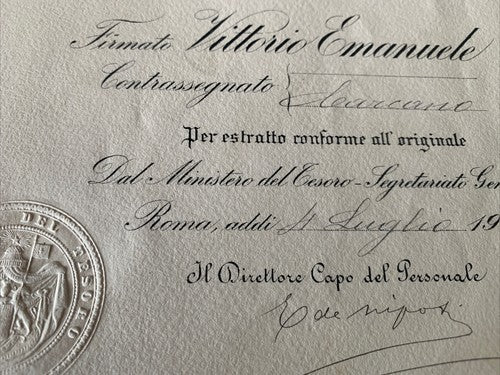 Firmato Vittorio Emanuele
Contrassegnato Carcano
Per estratto conforme all' originale
Dal Ministero del Tesoro-Segretariato Gen
Roma, addi Luglio 19
Il Direttore Capo del Personale
E de
DEL TESORO